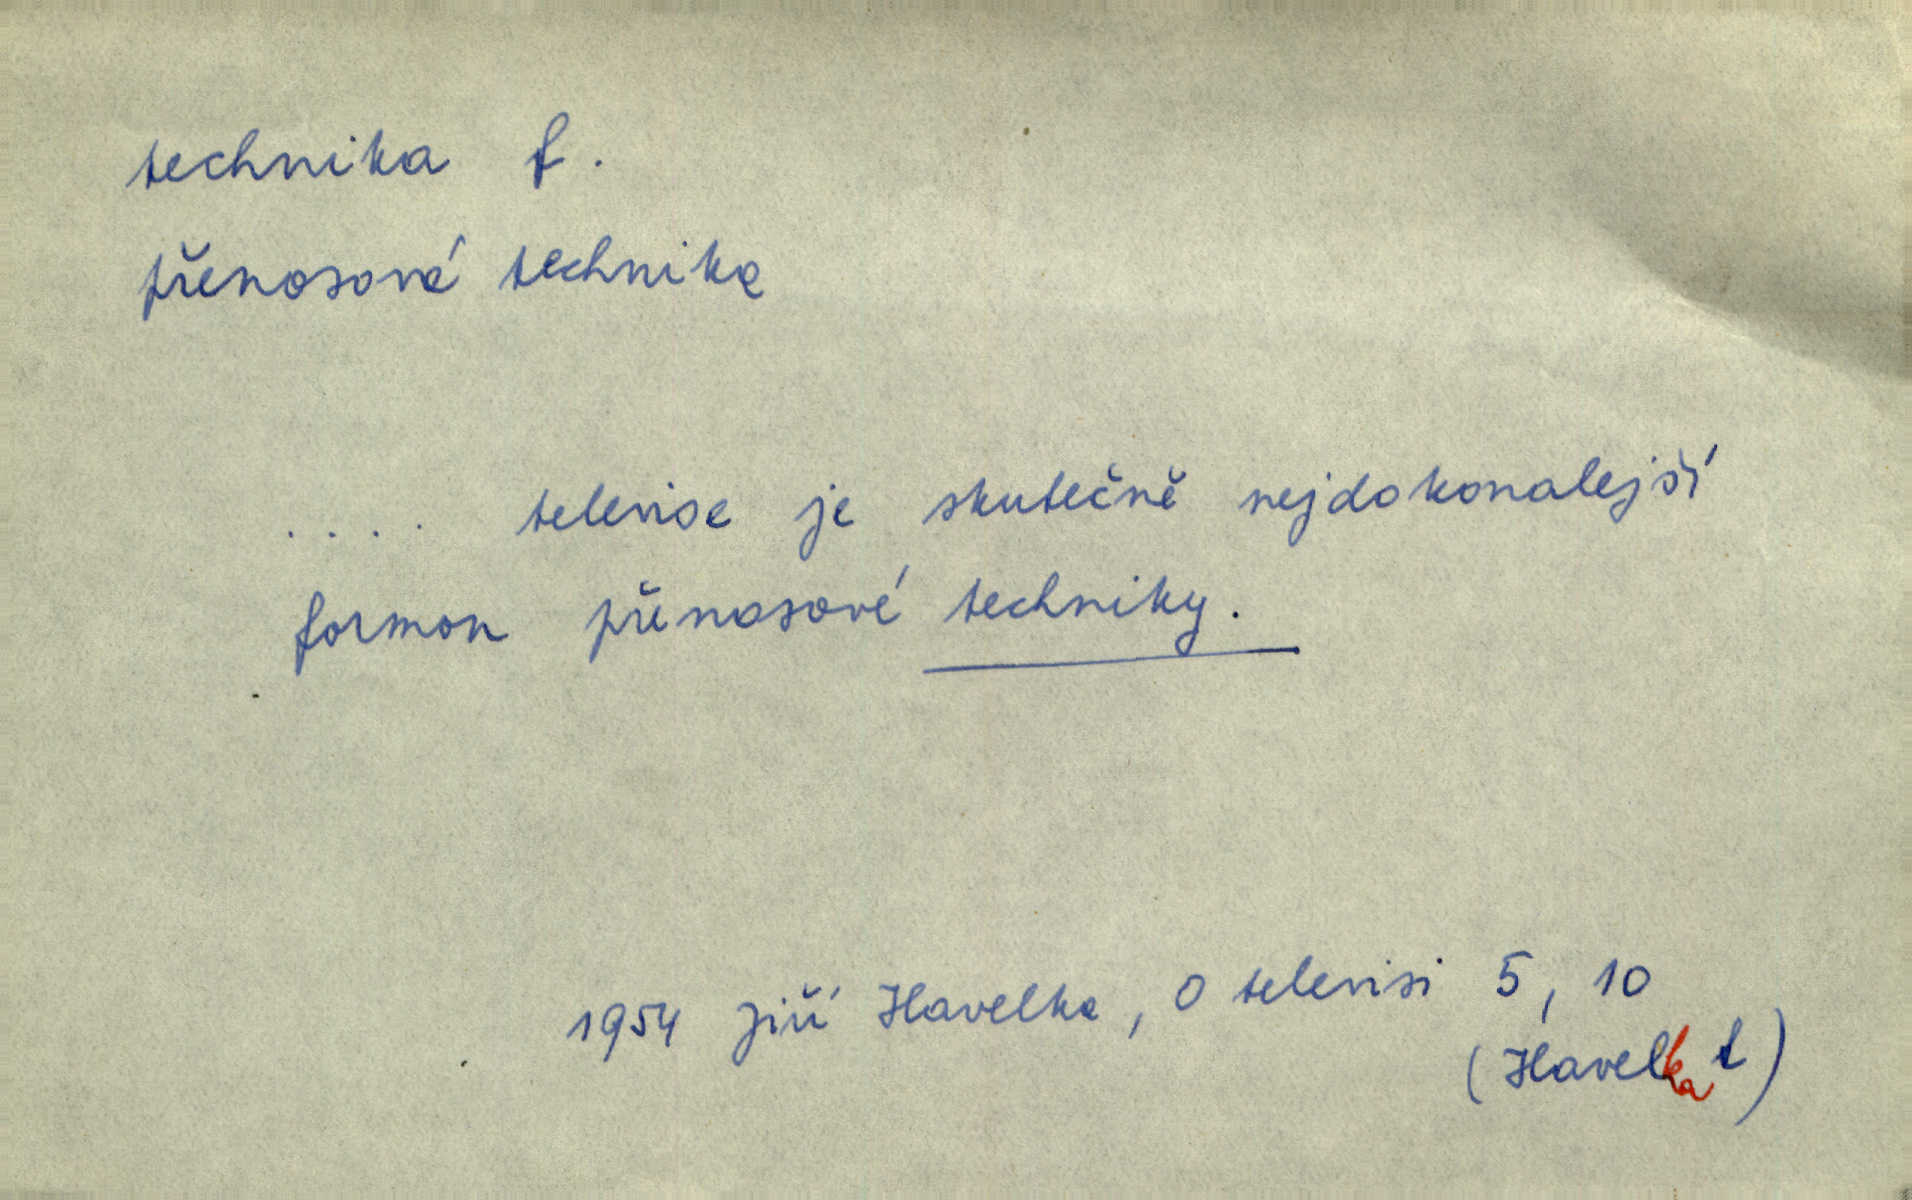 technika f.
přenosová technika
.... televise je skutečně nejdokonalejší
formou přenosové techniky.
1954 Jiří Havelka, O televisi 5, 10
(Havelka t)